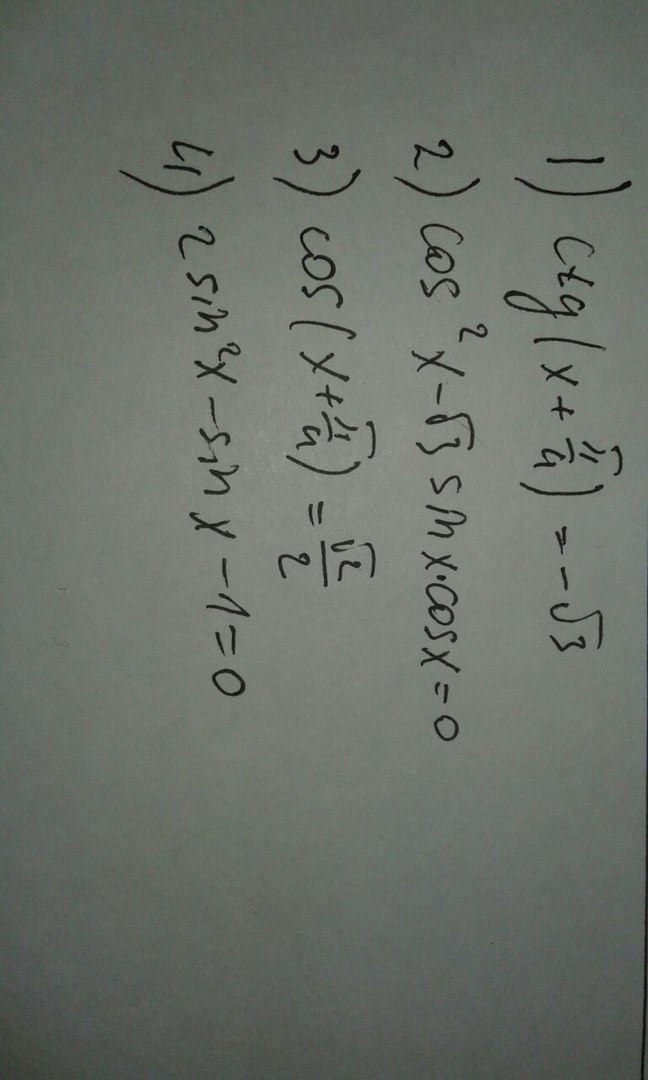 1) ctg(x + π/4) = -√3
2) cos²x - √3 sin x·cos x = 0
3) cos(x + π/4) = √2/2
4) 2 sin²x - sin x - 1 = 0